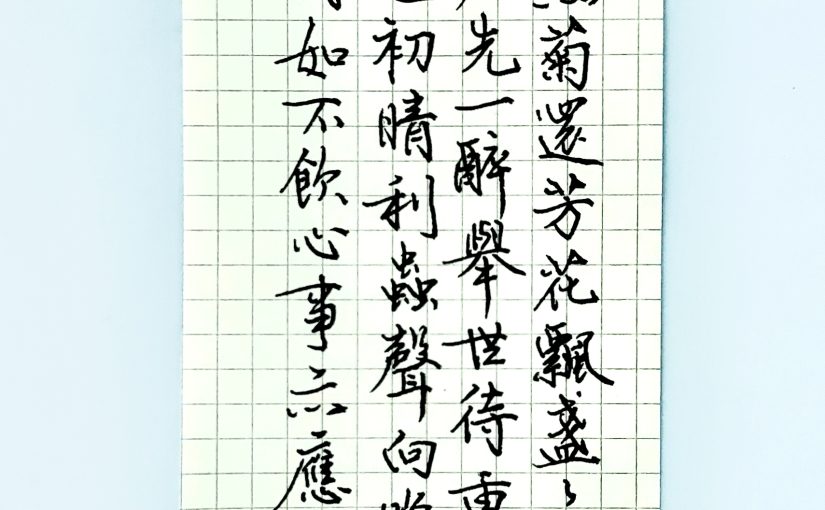 菊還芳花飄盞〻
先一醉舉世待重
初晴利蟲聲向晚
如不飲心事亦應